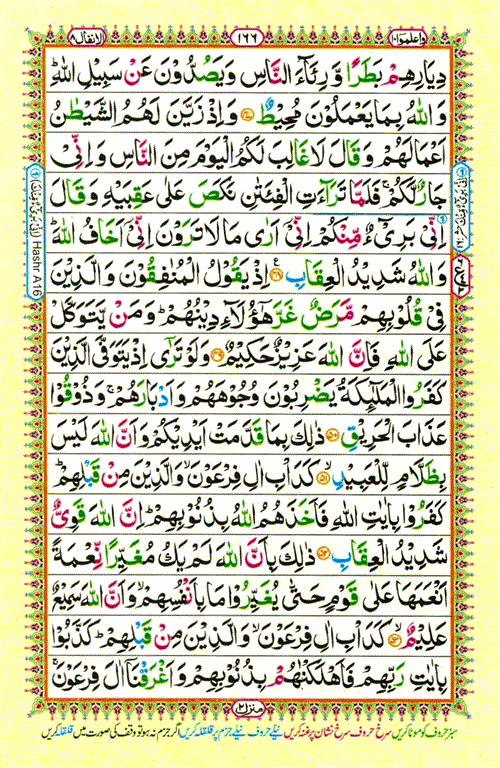 الانفال ٨
١٦٦
واعلموا ١٠
دِيَارِهِمْ بَطَرًا وَّرِئَآءَ النَّاسِ وَيَصُدُّوْنَ عَنْ سَبِيْلِ اللّٰهِ ؕ
وَاللّٰهُ بِمَا يَعْمَلُوْنَ مُحِيْطٌ ﴿۴۷﴾ وَاِذْ زَيَّنَ لَهُمُ الشَّيْطٰنُ
اَعْمَالَهُمْ وَقَالَ لَا غَالِبَ لَكُمُ الْيَوْمَ مِنَ النَّاسِ وَاِنِّىْ
جَارٌ لَّكُمْ ۚ فَلَمَّا تَرَآءَتِ الْفِئَتٰنِ نَكَصَ عَلٰى عَقِبَيْهِ وَقَالَ
اِنِّىْ بَرِىْٓءٌ مِّنْكُمْ اِنِّىْٓ اَرٰى مَا لَا تَرَوْنَ اِنِّىْٓ اَخَافُ اللّٰهَ ؕ
وَاللّٰهُ شَدِيْدُ الْعِقَابِ ﴿۴۸﴾ اِذْ يَقُوْلُ الْمُنٰفِقُوْنَ وَالَّذِيْنَ
فِىْ قُلُوْبِهِمْ مَّرَضٌ غَرَّ هٰٓؤُلَآءِ دِيْنُهُمْ ؕ وَمَنْ يَّتَوَكَّلْ
عَلَى اللّٰهِ فَاِنَّ اللّٰهَ عَزِيْزٌ حَكِيْمٌ ﴿۴۹﴾ وَلَوْ تَرٰٓى اِذْ يَتَوَفَّى الَّذِيْنَ
كَفَرُوا الْمَلٰٓئِكَةُ يَضْرِبُوْنَ وُجُوْهَهُمْ وَاَدْبَارَهُمْ ۚ وَذُوْقُوْا
عَذَابَ الْحَرِيْقِ ﴿۵۰﴾ ذٰلِكَ بِمَا قَدَّمَتْ اَيْدِيْكُمْ وَاَنَّ اللّٰهَ لَيْسَ
بِظَلَّامٍ لِّلْعَبِيْدِ ﴿۵۱﴾ كَدَاْبِ اٰلِ فِرْعَوْنَ ۙ وَالَّذِيْنَ مِنْ قَبْلِهِمْ ؕ
كَفَرُوْا بِاٰيٰتِ اللّٰهِ فَاَخَذَهُمُ اللّٰهُ بِذُنُوْبِهِمْ ؕ اِنَّ اللّٰهَ قَوِىٌّ
شَدِيْدُ الْعِقَابِ ﴿۵۲﴾ ذٰلِكَ بِاَنَّ اللّٰهَ لَمْ يَكُ مُغَيِّرًا نِّعْمَةً
اَنْعَمَهَا عَلٰى قَوْمٍ حَتّٰى يُغَيِّرُوْا مَا بِاَنْفُسِهِمْ ۙ وَاَنَّ اللّٰهَ سَمِيْعٌ
عَلِيْمٌ ﴿۵۳﴾ كَدَاْبِ اٰلِ فِرْعَوْنَ ۙ وَالَّذِيْنَ مِنْ قَبْلِهِمْ ؕ كَذَّبُوْا
بِاٰيٰتِ رَبِّهِمْ فَاَهْلَكْنٰهُمْ بِذُنُوْبِهِمْ وَاَغْرَقْنَآ اٰلَ فِرْعَوْنَ ۚ
Hashr A16
منزل ٢
سبز حروف کو موٹا کریں سرخ حروف سرخ نشان پر غنہ کریں نیلے حروف نیلے جزم پر قلقلہ کریں اگر جزم نہ ہو تو وقف کی صورت میں قلقلہ کریں